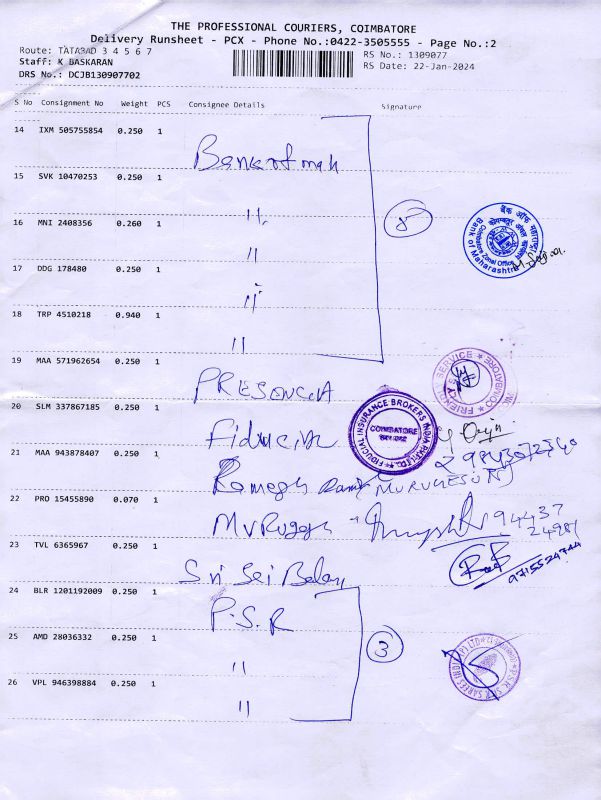 THE PROFESSIONAL COURIERS, COIMBATORE
Delivery Runsheet - PCX - Phone No.:0422-3505555 - Page No.:2
Route: TATABAD 3 4 5 6 7
RS No.: 1309077
Staff: K BASKARAN
RS Date: 22-Jan-2024
DRS No.: DCJB130907702
S No Consignment No Weight PCS Consignee Details Signature
14 IXM 505755854 0.250 1
Bank of mah
15 SVK 10470253 0.250 1
"
16 MNI 2408356 0.260 1
"
17 DDG 178480 0.250 1
"
18 TRP 4510218 0.940 1
"
5
बैंक ऑफ महाराष्ट्र
Coimbatore Zonal Office
Bank of Maharashtra
19 MAA 571962654 0.250 1
FRIENDLY SERVICE
COIMBATORE
20 SLM 337867185 0.250 1
FIDUCIAL INSURANCE BROKERS INDIA PVT LTD.
COIMBATORE
21 MAA 943878407 0.250 1
Ramesh
22 PRO 15455890 0.070 1
94437
24981
23 TVL 6365967 0.250 1
Sri Sai
9715524744
24 BLR 1201192009 0.250 1
P.S.R
25 AMD 28036332 0.250 1
"
3
26 VPL 946398884 0.250 1
"